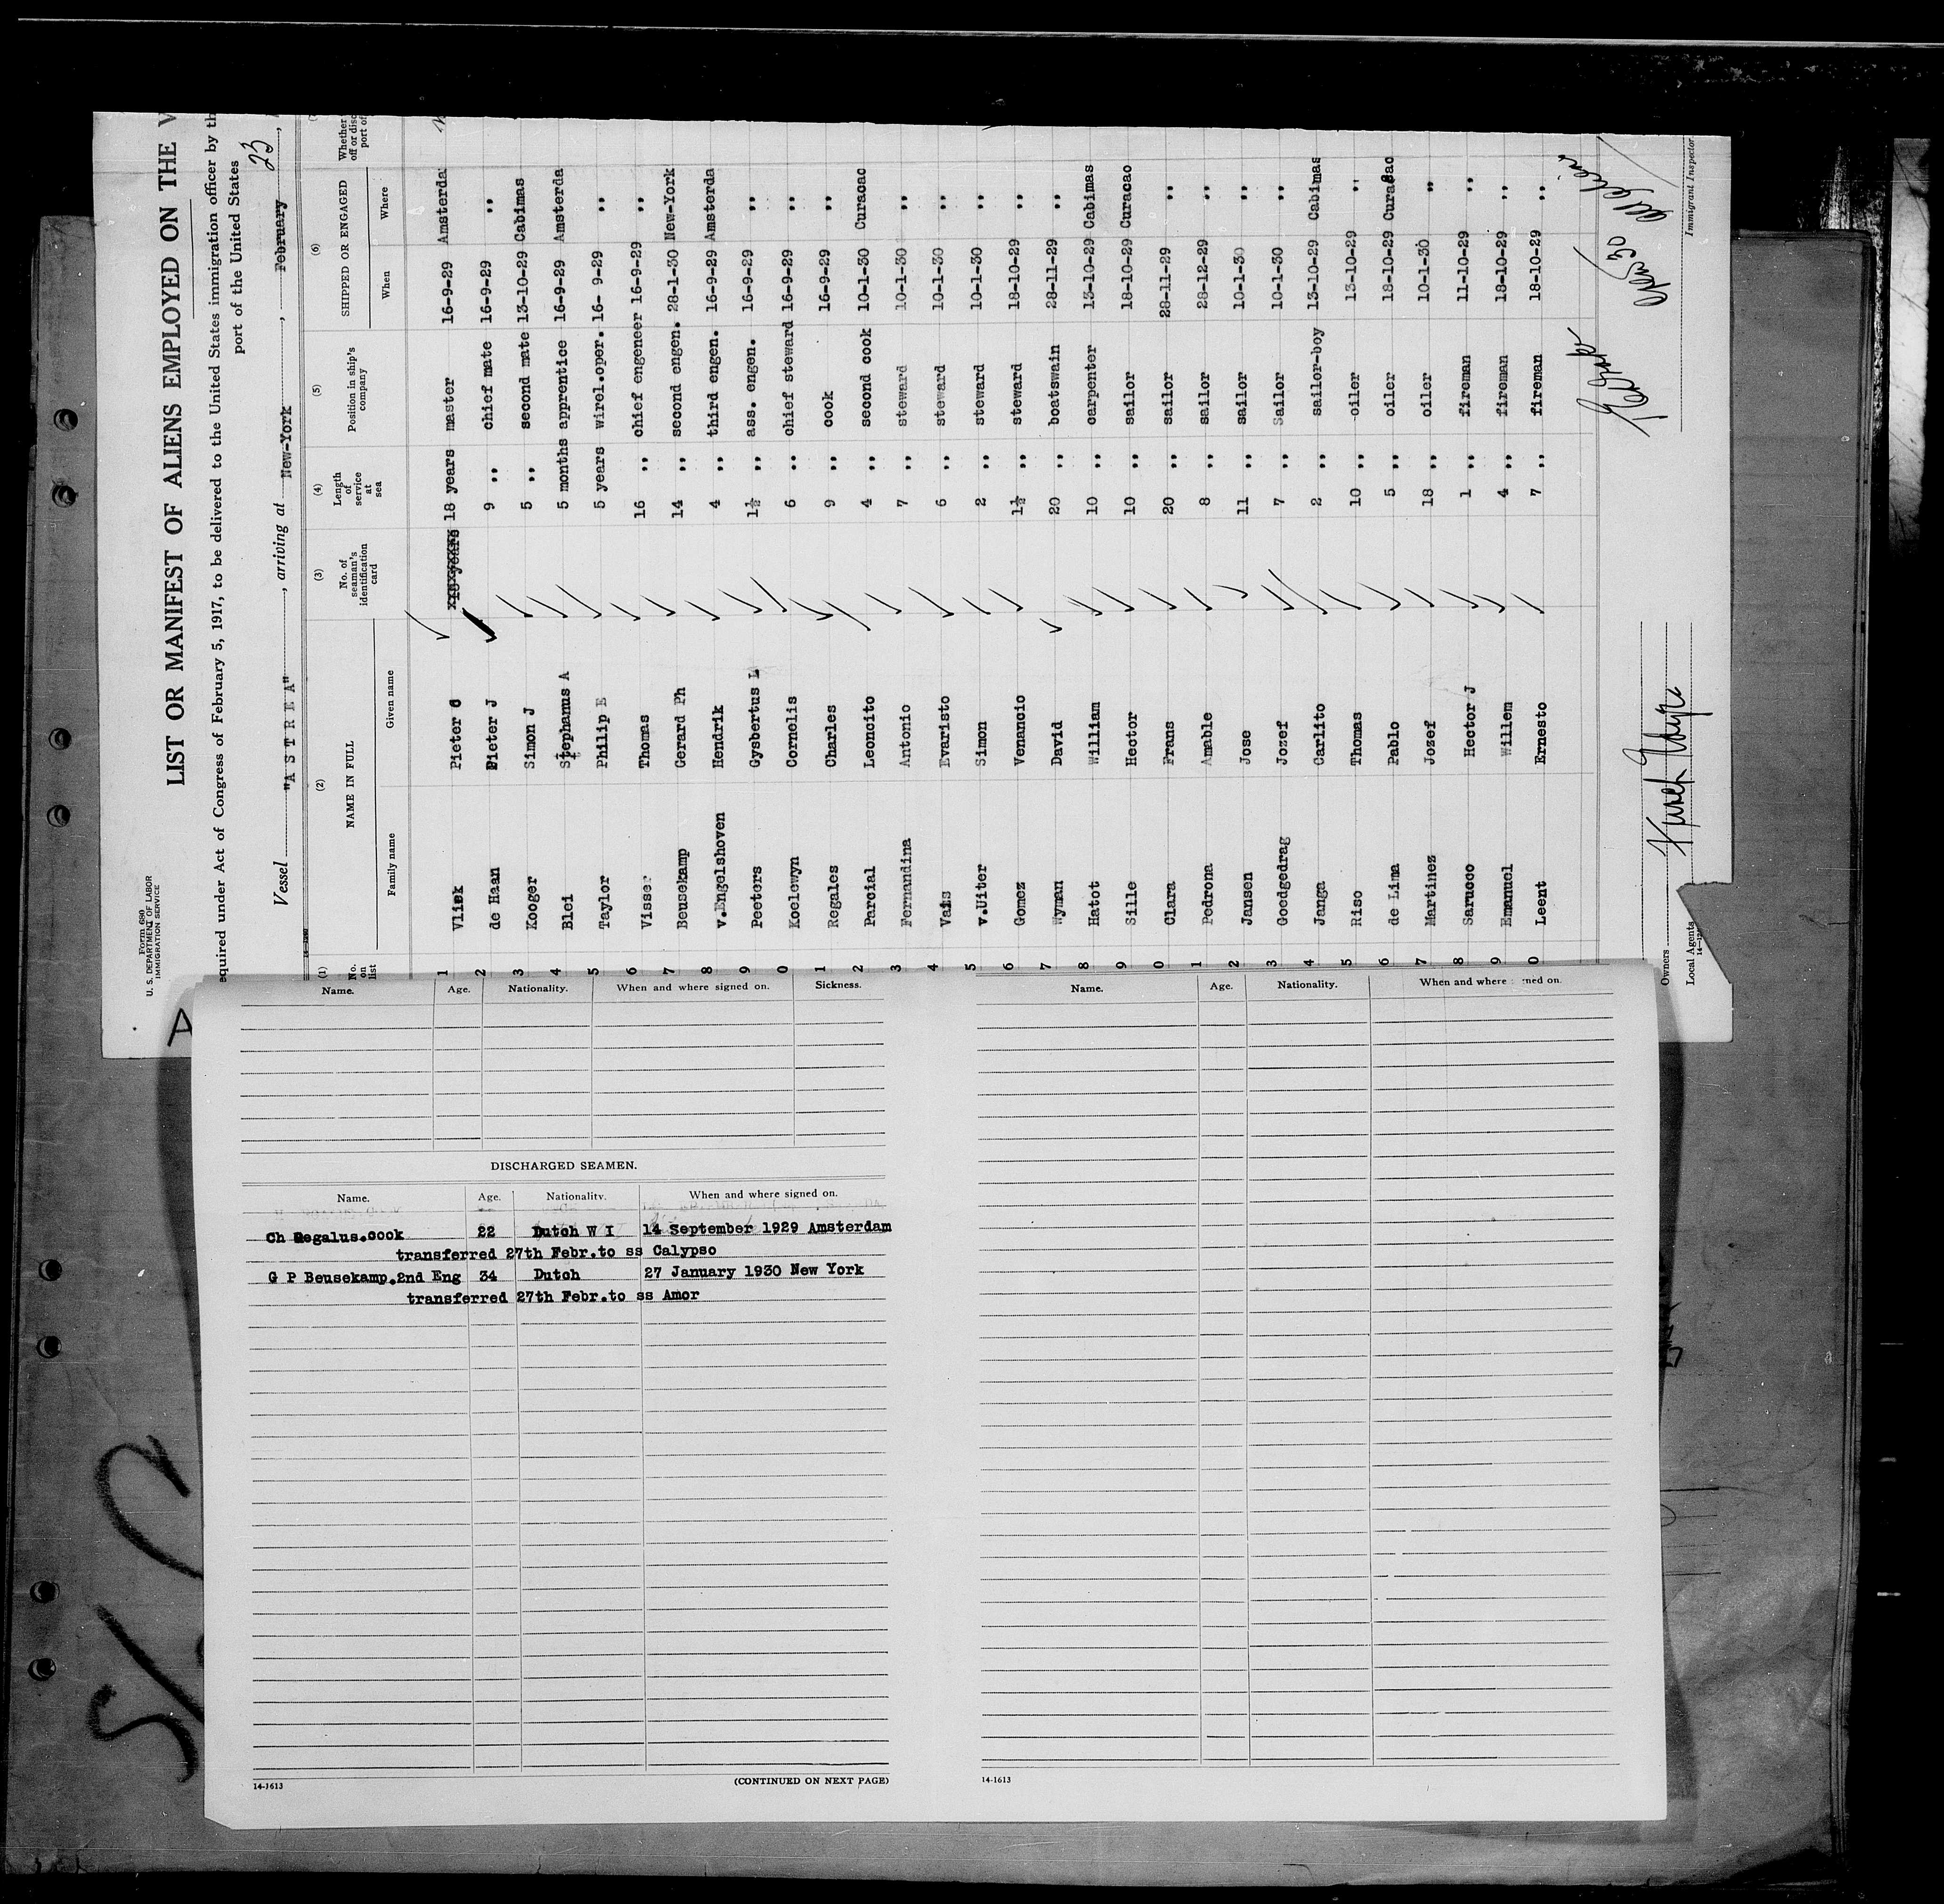 Form 680
U. S. DEPARTMENT OF LABOR
IMMIGRATION SERVICE
LIST OR MANIFEST OF ALIENS EMPLOYED ON THE
equired under Act of Congress of February 5, 1917, to be delivered to the United States immigration officer by th
port of the United States
Vessel "A S T R E A", arriving at New-York, February 23,
(1) (2) (3) (4) (5) (6)
No. on list NAME IN FULL No. of seaman's identification card Length of service at sea Position in ship's company SHIPPED OR ENGAGED Whether
Family name Given name When Where
1 Vliek Pieter C 18 years master 16-9-29 Amsterda
2 de Haan Pieter J 9 ,, chief mate 16-9-29 ,,
3 Kooger Simon J 5 ,, second mate 13-10-29 Cabimas
4 Blei Stephanus A 5 months apprentice 16-9-29 Amsterda
5 Taylor Philip E 5 years wirel.oper. 16- 9-29 ,,
6 Visser Thomas 16 ,, chief engeneer 16-9-29 ,,
7 Beusekamp Gerard Ph 14 ,, second engen. 28-1-30 New-York
8 v.Engelshoven Hendrik 4 ,, third engen. 16-9-29 Amsterda
9 Peeters Gysbertus L 1½ ,, ass. engen. 16-9-29 ,,
0 Koelewyn Cornelis 6 ,, chief steward 16-9-29 ,,
1 Regales Charles 9 ,, cook 16-9-29 ,,
2 Parcial Leoncito 4 ,, second cook 10-1-30 Curacao
3 Fernandina Antonio 7 ,, steward 10-1-30 ,,
4 Vais Evaristo 6 ,, steward 10-1-30 ,,
5 v.Uiter Simon 2 ,, steward 10-1-30 ,,
6 Gomez Venancio 1½ ,, steward 18-10-29 ,,
7 Wyman David 20 ,, boatswain 28-11-29 ,,
8 Hatot William 10 ,, carpenter 13-10-29 Cabimas
9 Sille Hector 10 ,, sailor 18-10-29 Curacao
0 Clara Frans 20 ,, sailor 28-11-29 ,,
1 Pedrona Amable 8 ,, sailor 28-12-29 ,,
2 Jansen Jose 11 ,, sailor 10-1-30 ,,
3 Goedgedrag Jozef 7 ,, Sailor 10-1-30 ,,
4 Janga Carlito 2 ,, sailor-boy 13-10-29 Cabimas
5 Riso Thomas 10 ,, oiler 13-10-29 ,,
6 de Lima Pablo 5 ,, oiler 18-10-29 Curacao
7 Martinez Jozef 18 ,, oiler 10-1-30 ,,
8 Sarucco Hector J 1 ,, fireman 11-10-29 ,,
9 Emanuel Willem 4 ,, fireman 18-10-29 ,,
0 Leent Ernesto 7 ,, fireman 18-10-29 ,,
Owners
Local Agents
Immigrant Inspector
Name. Age. Nationality. When and where signed on. Sickness.
DISCHARGED SEAMEN.
Name. Age. Nationality. When and where signed on.
Ch Regalus.cook 22 Dutch W I 14 September 1929 Amsterdam
transferred 27th Febr.to ss Calypso
G P Beusekamp.2nd Eng 34 Dutch 27 January 1930 New York
transferred 27th Febr.to ss Amor
14-1613 (CONTINUED ON NEXT PAGE)
Name. Age. Nationality. When and where ned on.
14-1613